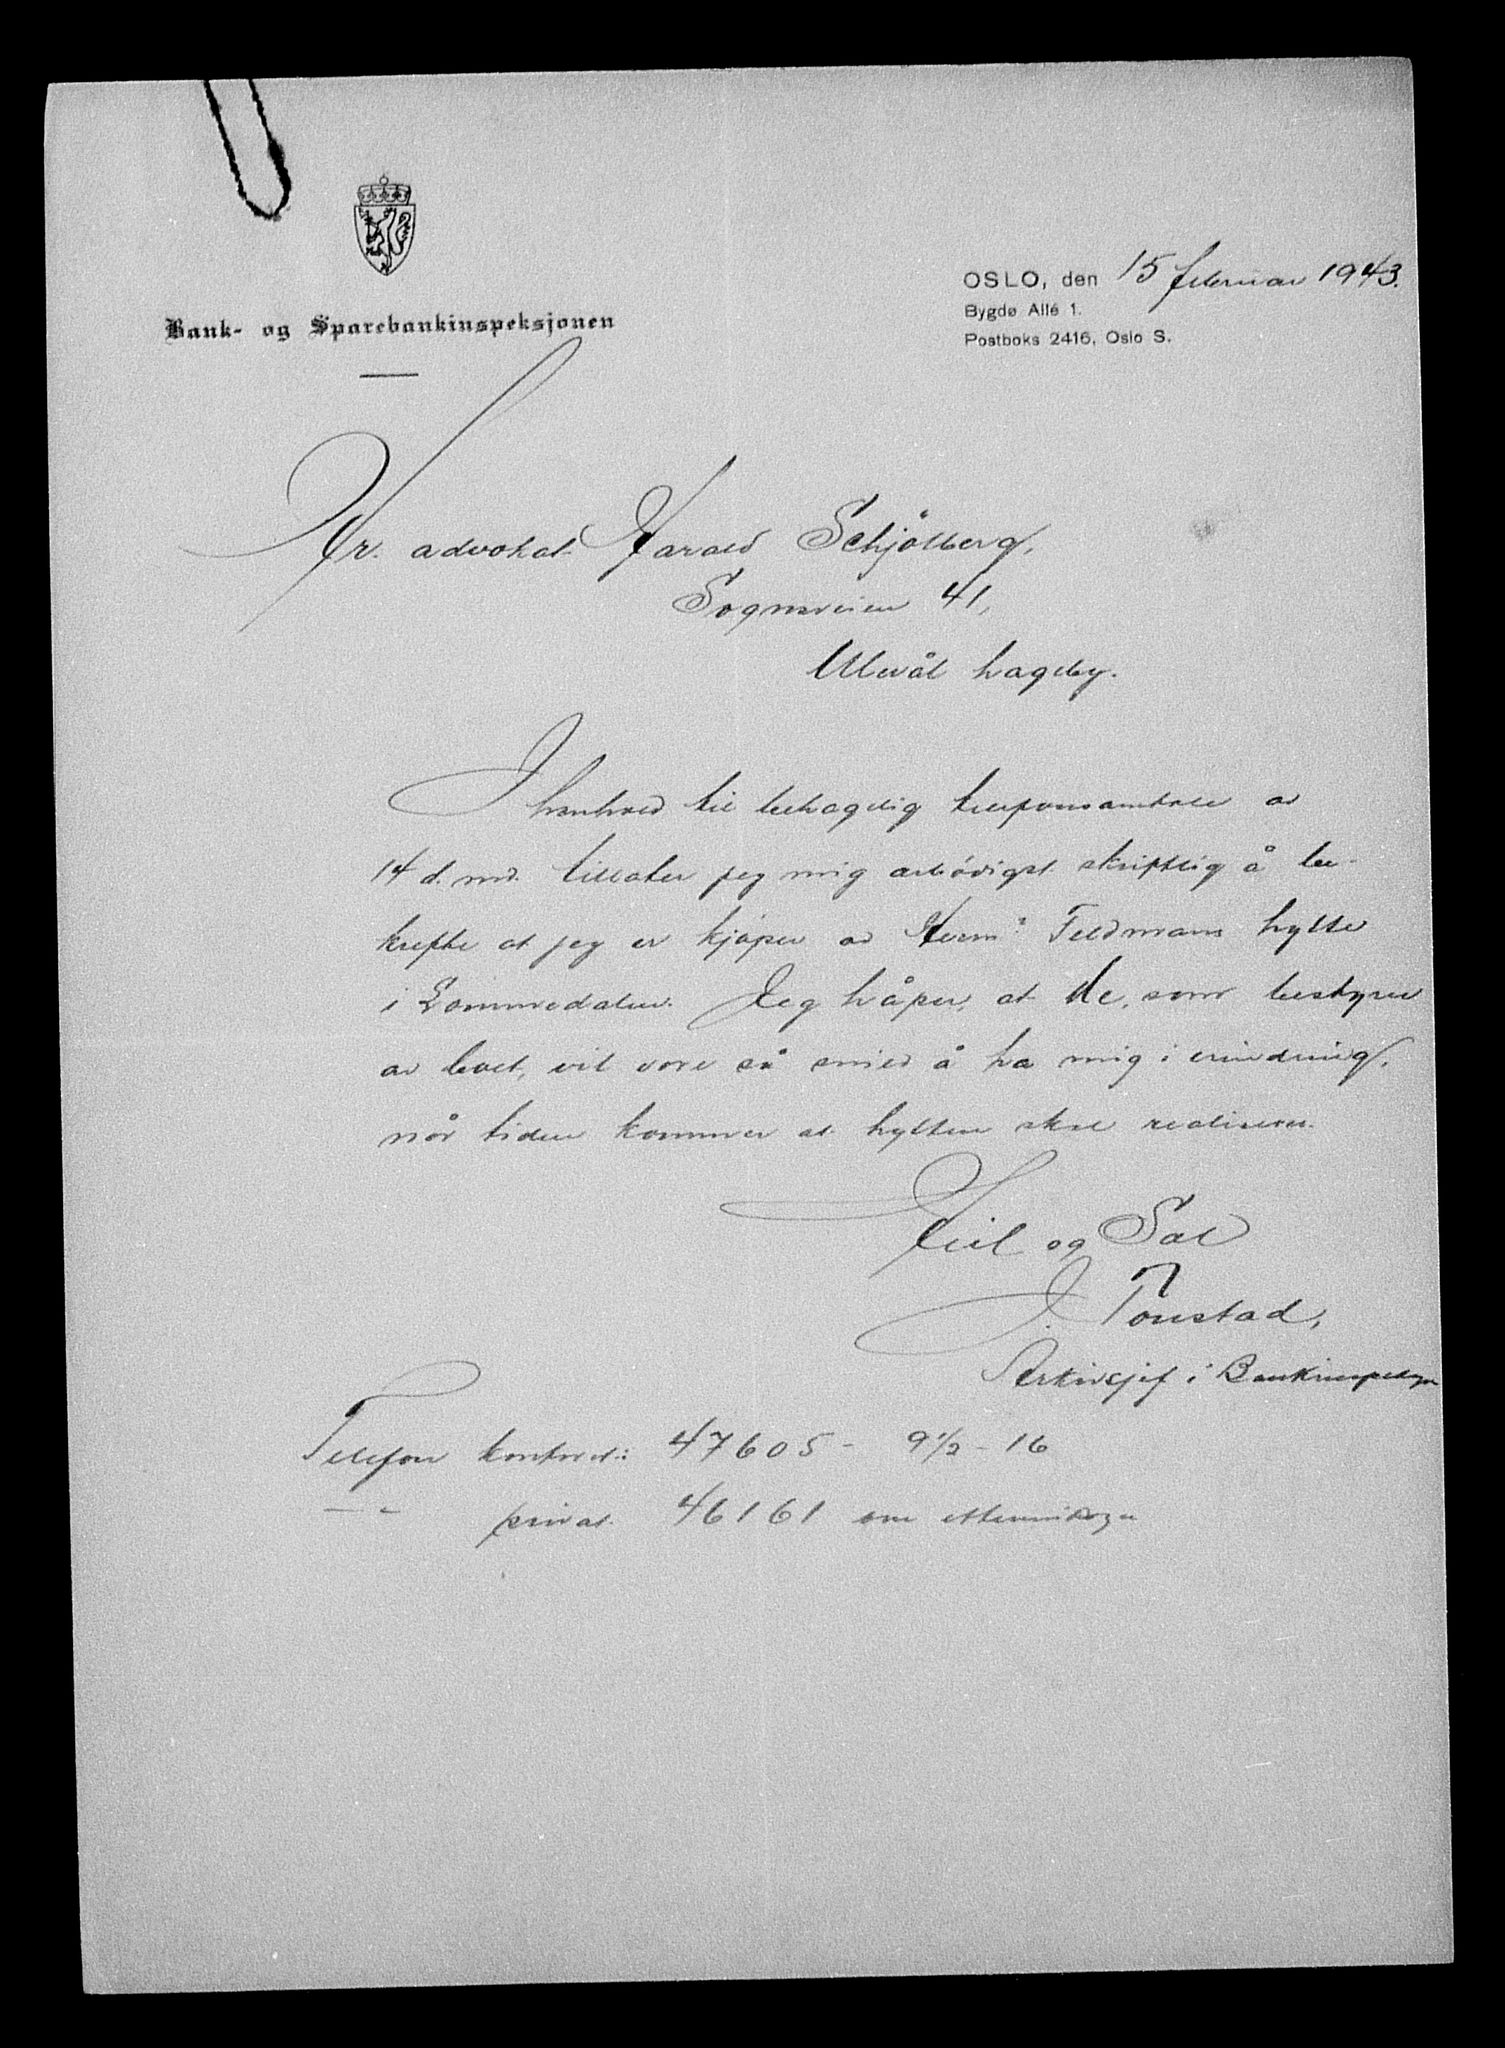 OSLO, den 15 februar 1943.
Bygdø Allé 1.
Postboks 2416, Oslo S.
Bank- og Sparebankinspeksjonen
Hr. advokat Harald Schjölberg,
Sognsveien 41,
Ullevål hageby.
I henhold til behagelig telefonsamtale av
14 d. md. tillater jeg mig ærbödigst skriftlig å be-
krefte at jeg er kjöper av Herm. Feldmans hytte
i Lommedalen. Jeg håper, at De, som bestyrer
av boet, vil være så snild å ha mig i erindring,
når tiden kommer at hytten skal realiseres.
Heil og Sæl
J. Tonstad,
Arkivsjef i Bankinspeksjonen
Telefon kontoret: 47605 - 9½ - 16
— " — privat 46161 om ettermiddagen